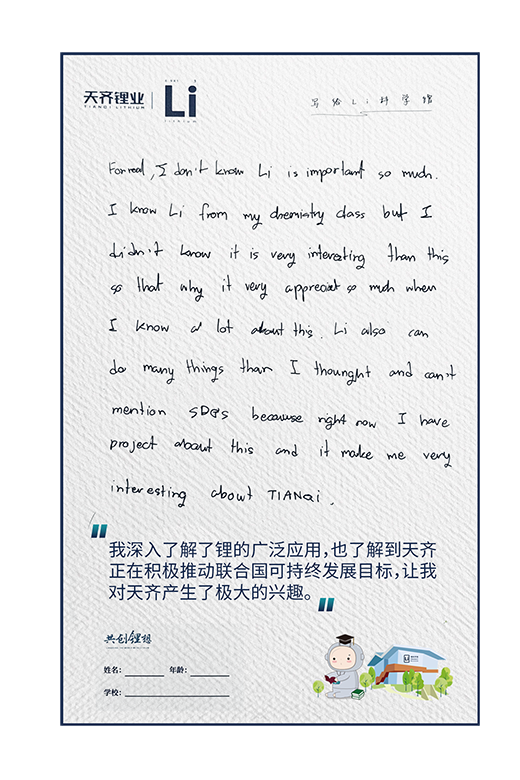 天齐锂业 Li
TIANQI LITHIUM
LITHIUM
写给Li科学馆
For real, I don't know Li is important so much.
I know Li from my chemistry class but I
didn't know it is very interesting than this
so that why it very appreciat so much when
I know a lot about this. Li also can
do many things than I thounght and can't
mention SDGs becauuse right now I have
project about this and it make me very
interesting about TIANQi.
"我深入了解了锂的广泛应用,也了解到天齐
正在积极推动联合国可持终发展目标,让我
对天齐产生了极大的兴趣。"
共创锂想
姓名: 年龄:
学校: